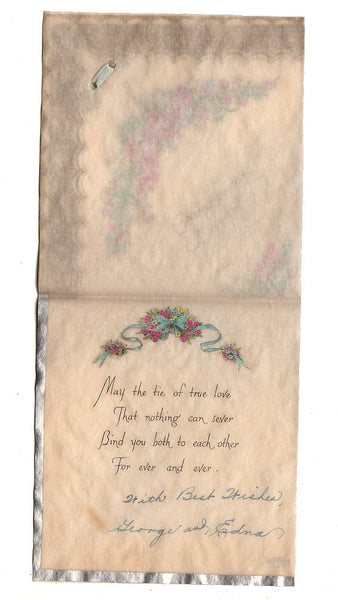 May the tie of true love
That nothing can sever
Bind you both to each other
For ever and ever.
With Best Wishes,
George and Edna